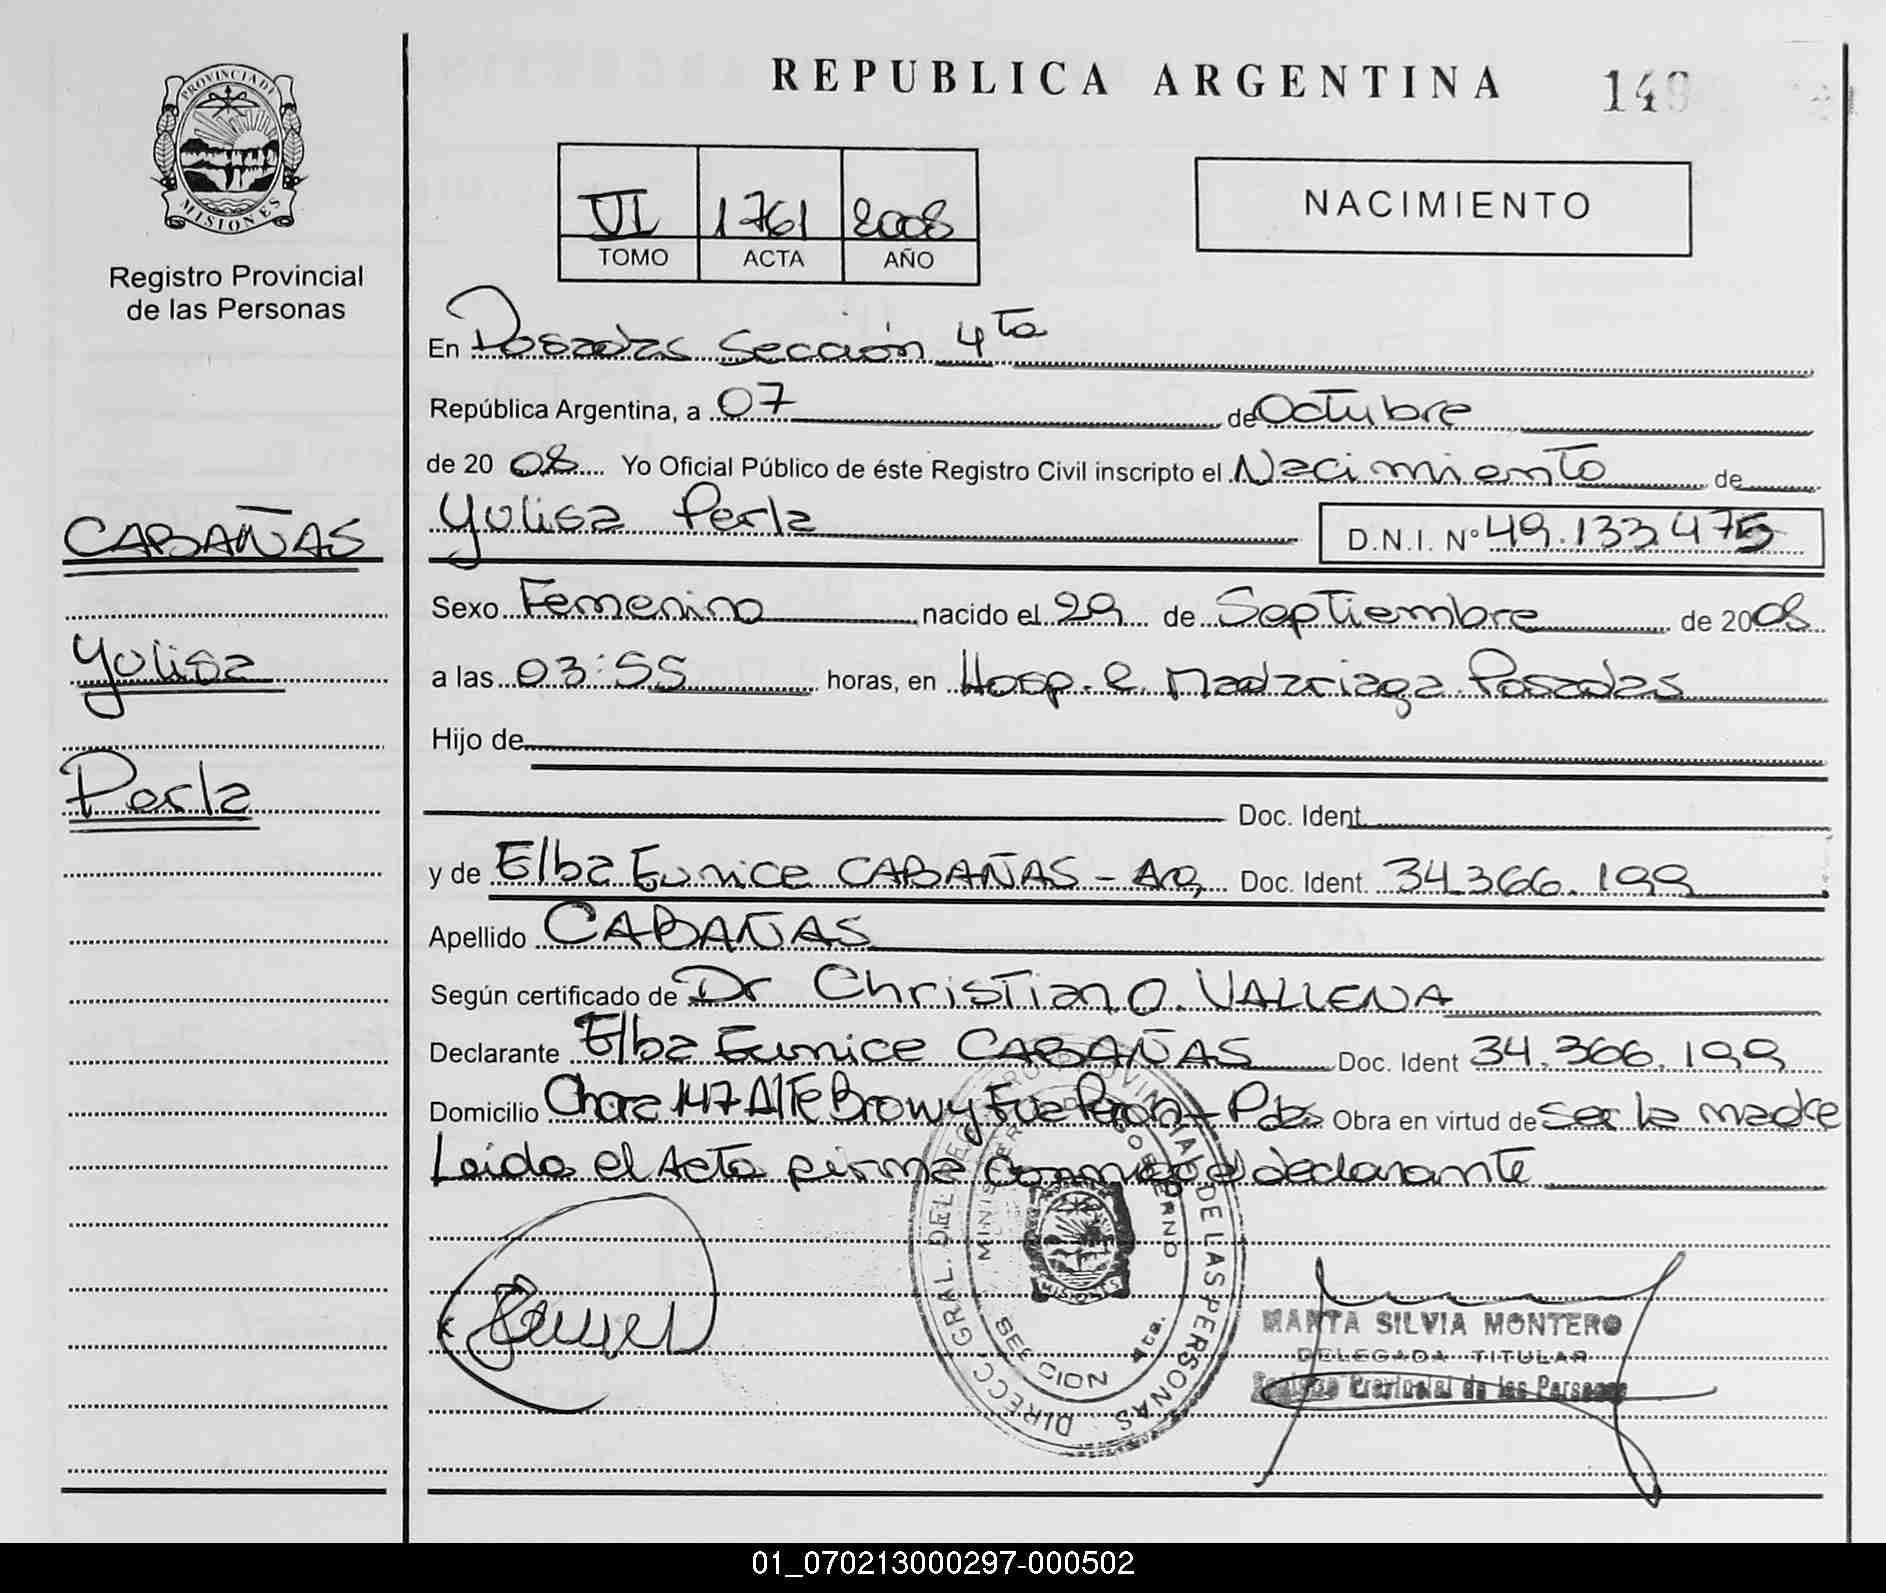 PROVINCIA DE
MISIONES
Registro Provincial
de las Personas
CABAÑAS
Yulisa
Perla
REPUBLICA ARGENTINA
149
VI 1761 2008
TOMO ACTA AÑO
NACIMIENTO
En Posadas Sección 4ta
República Argentina, a 07 de Octubre
de 20 08 Yo Oficial Público de éste Registro Civil inscripto el Nacimiento de
Yulisa Perla D.N.I. Nº 49.133.475
Sexo Femenino nacido el 29 de Septiembre de 2008
a las 03:55 horas, en Hosp. R. Madariaga. Posadas
Hijo de
Doc. Ident.
y de Elba Eunice CABAÑAS - Arg Doc. Ident. 34.366.199
Apellido CABAÑAS
Según certificado de Dr Christian O. VALLENA
Declarante Elba Eunice CABAÑAS Doc. Ident 34.366.199
Domicilio Chacra 147 AlTE Brow y Fue Perón - Pdas Obra en virtud de Ser la madre
Leída el Acta firma conmigo el declarante
DIRECC. GRAL. DEL REGISTRO PROVINCIAL DE LAS PERSONAS
MINISTERIO DE GOBIERNO
MISIONES
SECCION 4ta.
MARTA SILVIA MONTERO
DELEGADA TITULAR
Registro Provincial de las Personas
01_070213000297-000502